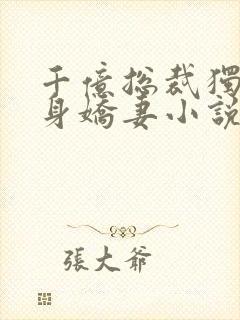 千億總裁獨
身嬌妻小說
張大爺